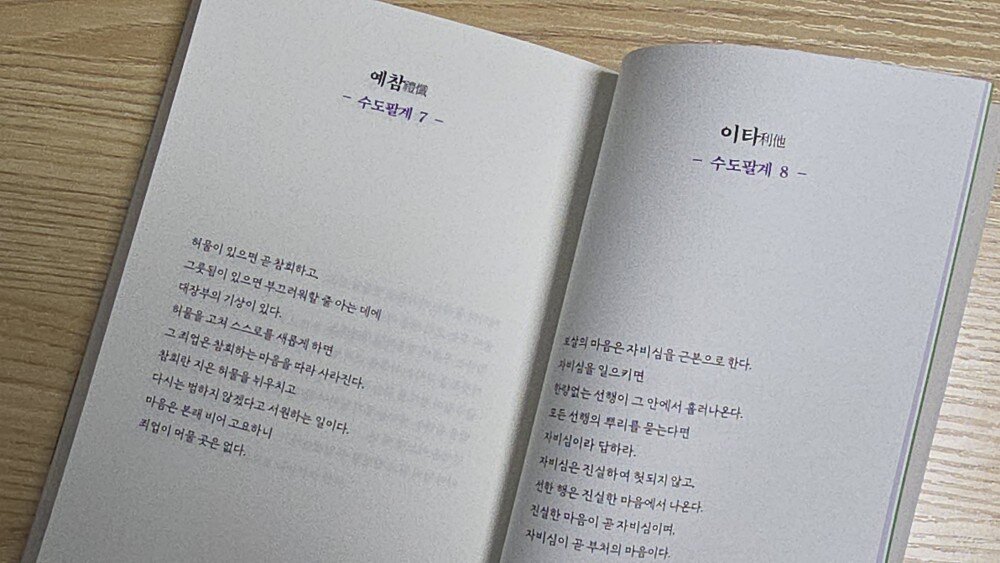 예참禮懺
- 수도팔게 7 -
허물이 있으면 곧 참회하고,
그릇됨이 있으면 부끄러워할 줄 아는 데에
대장부의 기상이 있다.
허물을 고쳐 스스로를 새롭게 하면
그 죄업은 참회하는 마음을 따라 사라진다.
참회란 지은 허물을 뉘우치고
다시는 범하지 않겠다고 서원하는 일이다.
마음은 본래 비어 고요하니
죄업이 머물 곳은 없다.
이타利他
- 수도팔게 8 -
보살의 마음은 자비심을 근본으로 한다.
자비심을 일으키면
한량없는 선행이 그 안에서 흘러나온다.
모든 선행의 뿌리를 묻는다면
자비심이라 답하라.
자비심은 진실하여 헛되지 않고,
선한 행은 진실한 마음에서 나온다.
진실한 마음이 곧 자비심이며,
자비심이 곧 부처의 마음이다.